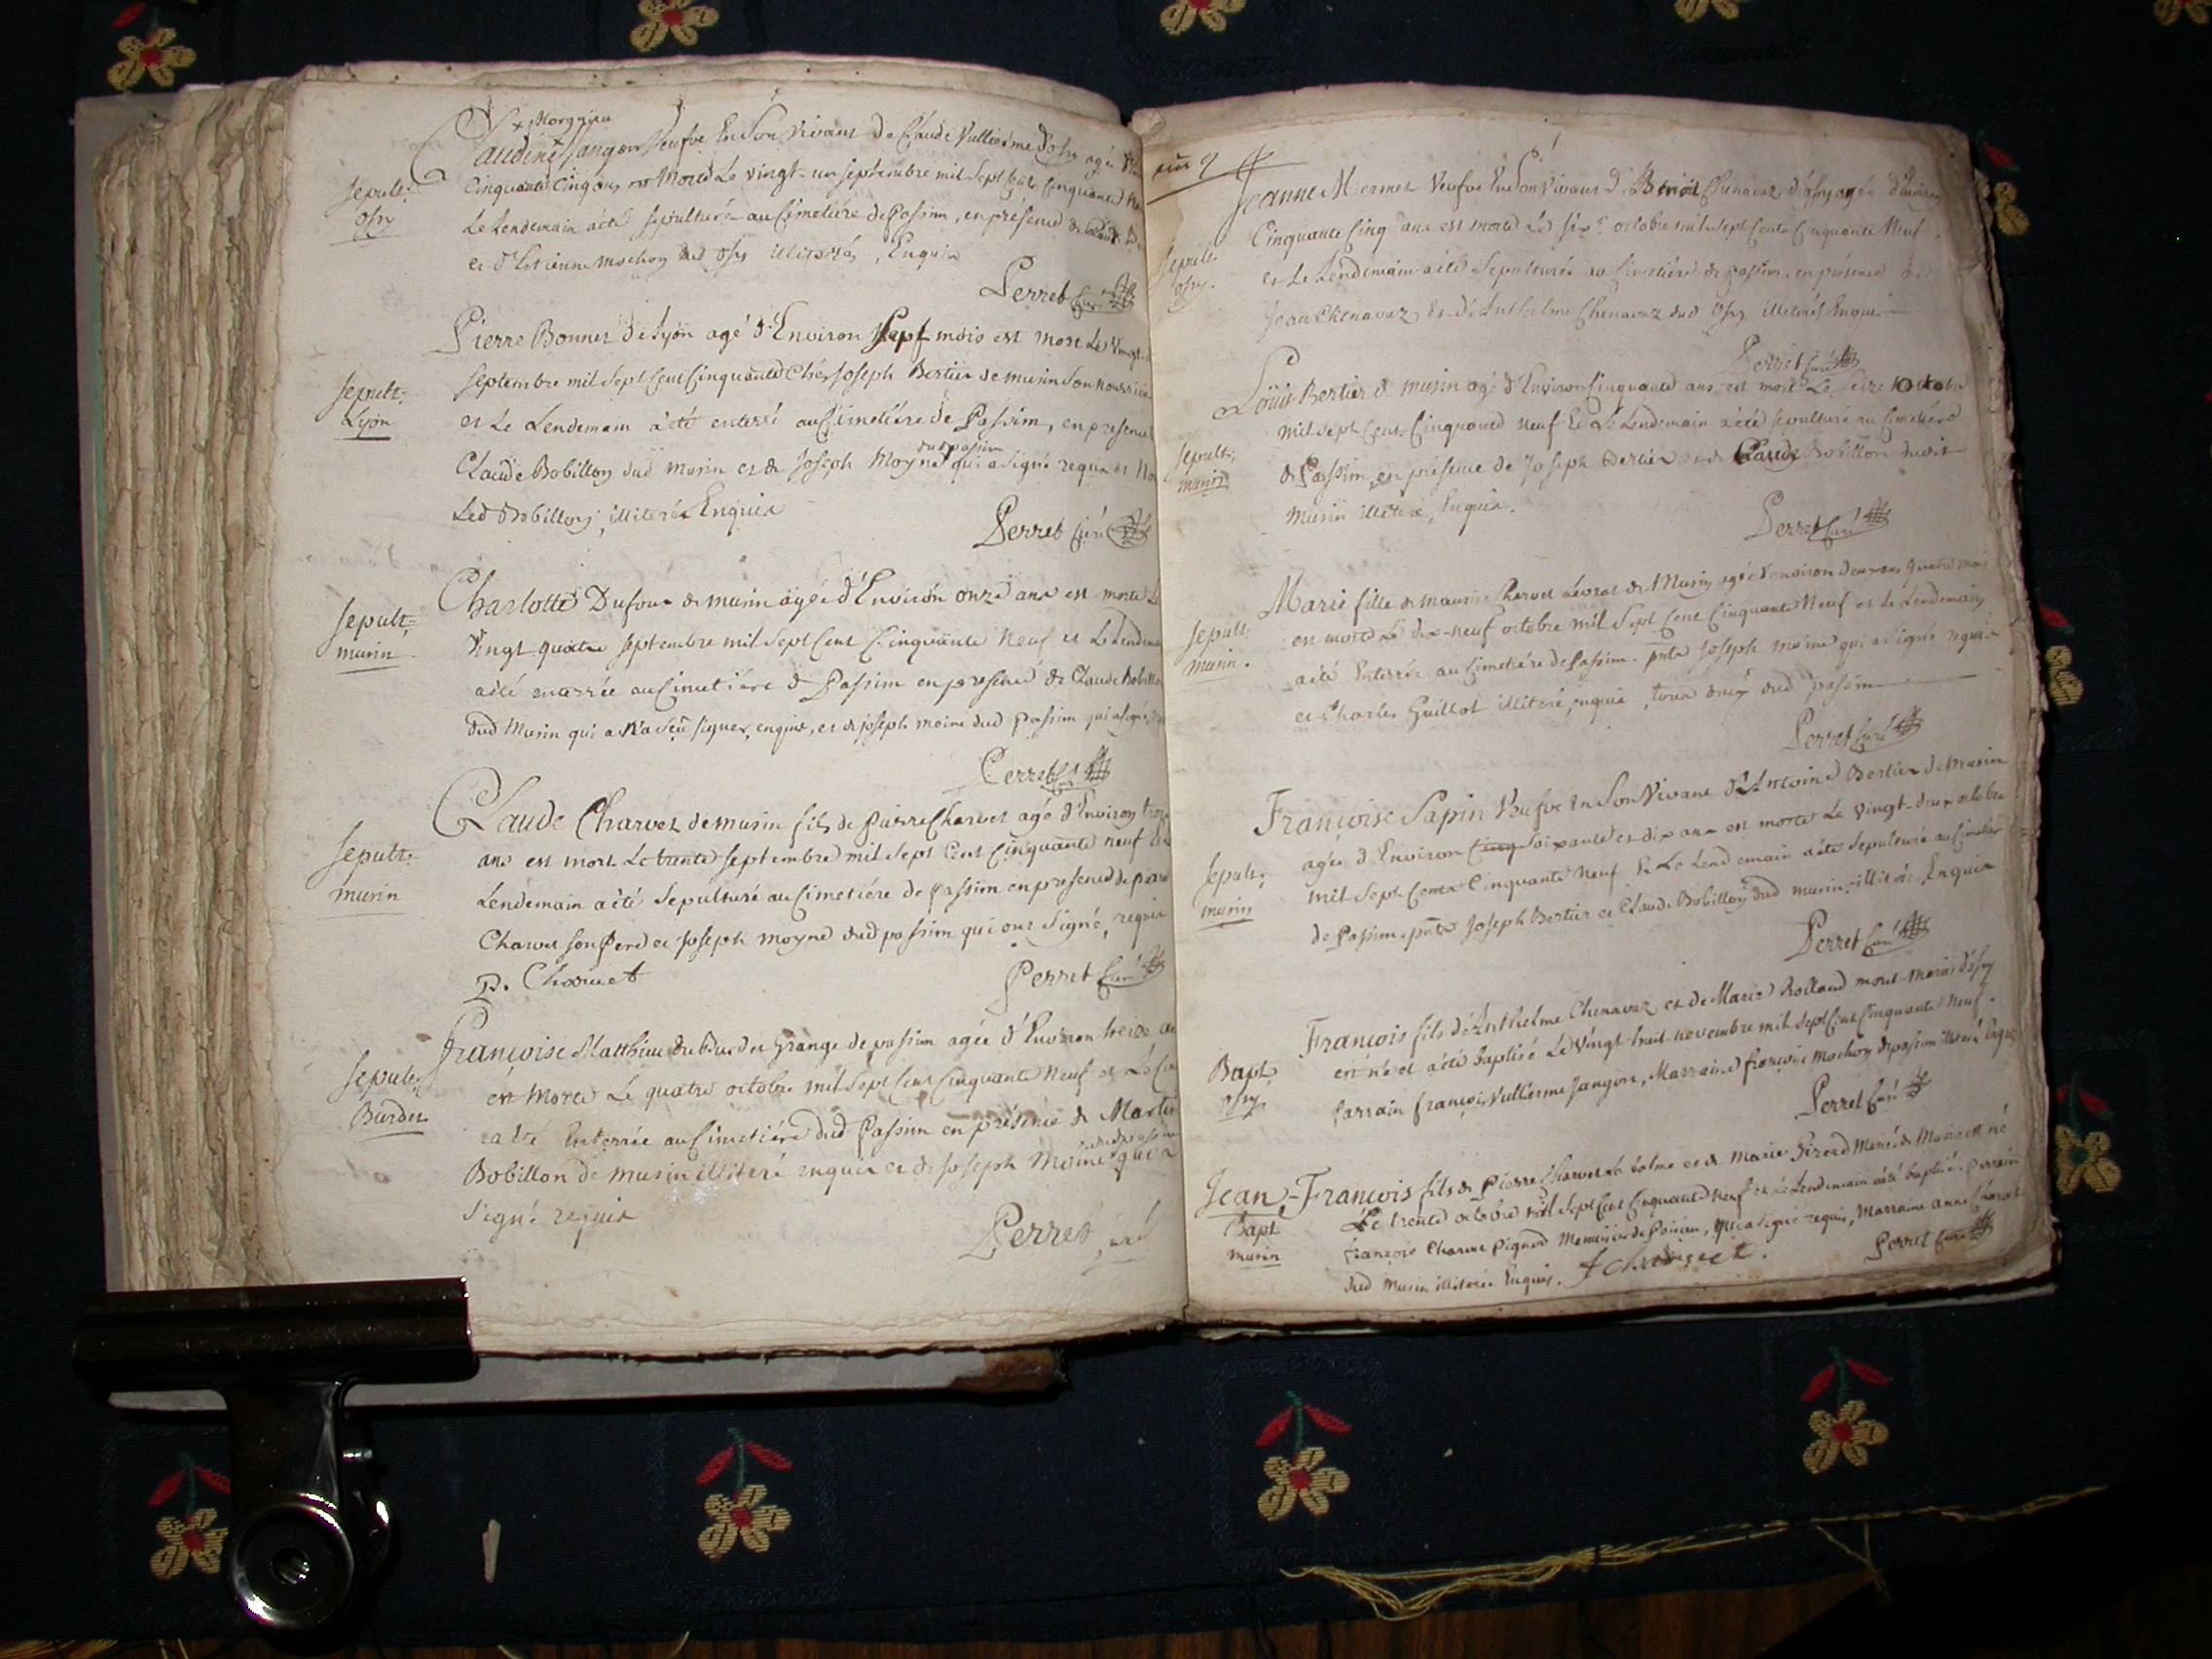 + Morgnieu
Claudine + Jangon Veufve En Son Vivant De Claude Vullierme D'osry agée
Sepult:
osry
Cinquante Cinq ans est Morte Le vingt-un septembre mil Sept Cent Cinquante
Le Lendemain a été sepulturée au Cimetiére de Passim, en présence de
et d'Estienne Mochon dud osry illiterés, Enquis
Perret Curé
Pierre Bonnet de Lyon agé d'Environ Sept mois est mort Le vingt
Sepult:
Lyon
septembre mil Sept Cent Cinquante Chés Joseph Bertier de murin Son nourricier
et Le Lendemain a été enterré au Cimetiére de Passim, en presence
dud passim
Claude Bobillon dud murin et de Joseph Moyne qui a signé requis et
Led Bobillon, illiteré Enquis
Perret Curé
Charlotte Dufour de murin agée d'Environ onze ans est morte Le
Sepult:
murin
Vingt quatre septembre mil Sept Cent Cinquante Neuf et Le Lendemain
a été enterrée au Cimetiére de Passim en presence de Claude Bobillon
dud Murin qui n'a sçu signer, enquis, et de joseph moine dud Passim qui a signé
Perret Curé
Claude Charvet de murin fils de Pierre Charvet agé d'Environ
Sepult:
murin
ans est mort Le trente septembre mil Sept Cent Cinquante neuf
Lendemain a été Sepulturé au Cimetiére de passim en presence de pierre
Charvet son Pere et Joseph moyne dud passim qui ont Signé, requis
P. Charuet
Perret Curé
Françoise Matthieu du Grange de passim agée d'Environ treize ans
Sepult:
est Morte Le quatre octobre mil Sept Cent Cinquante Neuf et Le
a été Enterrée au Cimetiére dud Passim en présence de Martin
Bobillon de murin illiteré enquis et de Joseph Moine qui a
signé requis
Perret curé
Jeanne Mermet Veufve En Son Vivant de Benoit Chenavaz d'osry agée d'Environ
Sepult:
osry.
Cinquante Cinq ans est morte Le six octobre mil Sept Cent Cinquante Neuf
et Le Lendemain a été Sepulturée au Cimetiére de passim, en présence de
Jean Chenavaz et d'Anthelme Chenavaz dud osry illiterés Enquis
Perret Curé
Loüis Bertier de murin agé d'Environ Cinquante ans, est mort Le seize octobre
Sepult:
murin
mil Sept Cent Cinquante neuf Et Le Lendemain a été sepulturé au Cimetiére
de Passim, en présence de Joseph Bertier et de Claude Bobillon dudit
Murin illiterés, Enquis.
Perret Curé
Marie fille de maurice Charvet de Murin agée d'environ deux ans quatre mois
Sepult:
murin.
est morte Le dix-neuf octobre mil Sept Cent Cinquante Neuf et Le Lendemain
a été Enterrée au Cimetiére de Passim. pnts Joseph moine qui a Signé requis
et Charles Guillot illiteré, enquis, tous deux dud passim
Perret Curé
Françoise Sapin Veufve En Son Vivant d'Antoine Bertier de Murin
Sepult:
murin
agée d'Environ Soixante et dix ans est morte Le vingt-deux octobre
mil Sept Cent Cinquante Neuf Et Le Lendemain a été Sepulturée au Cimetiére
de Passim. pnts Joseph Bertier et Claude Bobillon dud murin, illiterés, Enquis
Perret Curé
François fils d'Anthelme Chenavaz et de Marie Rolland mariés d'osry
Bapt:
osry
est né et a été baptisé Le vingt-huit novembre mil Sept Cent Cinquante Neuf.
Parrain françois Vullierme Jangon, Marraine françoise mochon de passim
Perret Curé
Jean-François fils de Pierre Charvet et de Marie Girerd Mariés de Murin est né
Bapt
murin
Le trente octobre mil Sept Cent Cinquante Neuf et Le Lendemain a été baptisé. parrain
françois Charvet, qui a signé requis, Marraine anne Charvet
dud Murin illiterée Enquis. f charuet.
Perret Curé